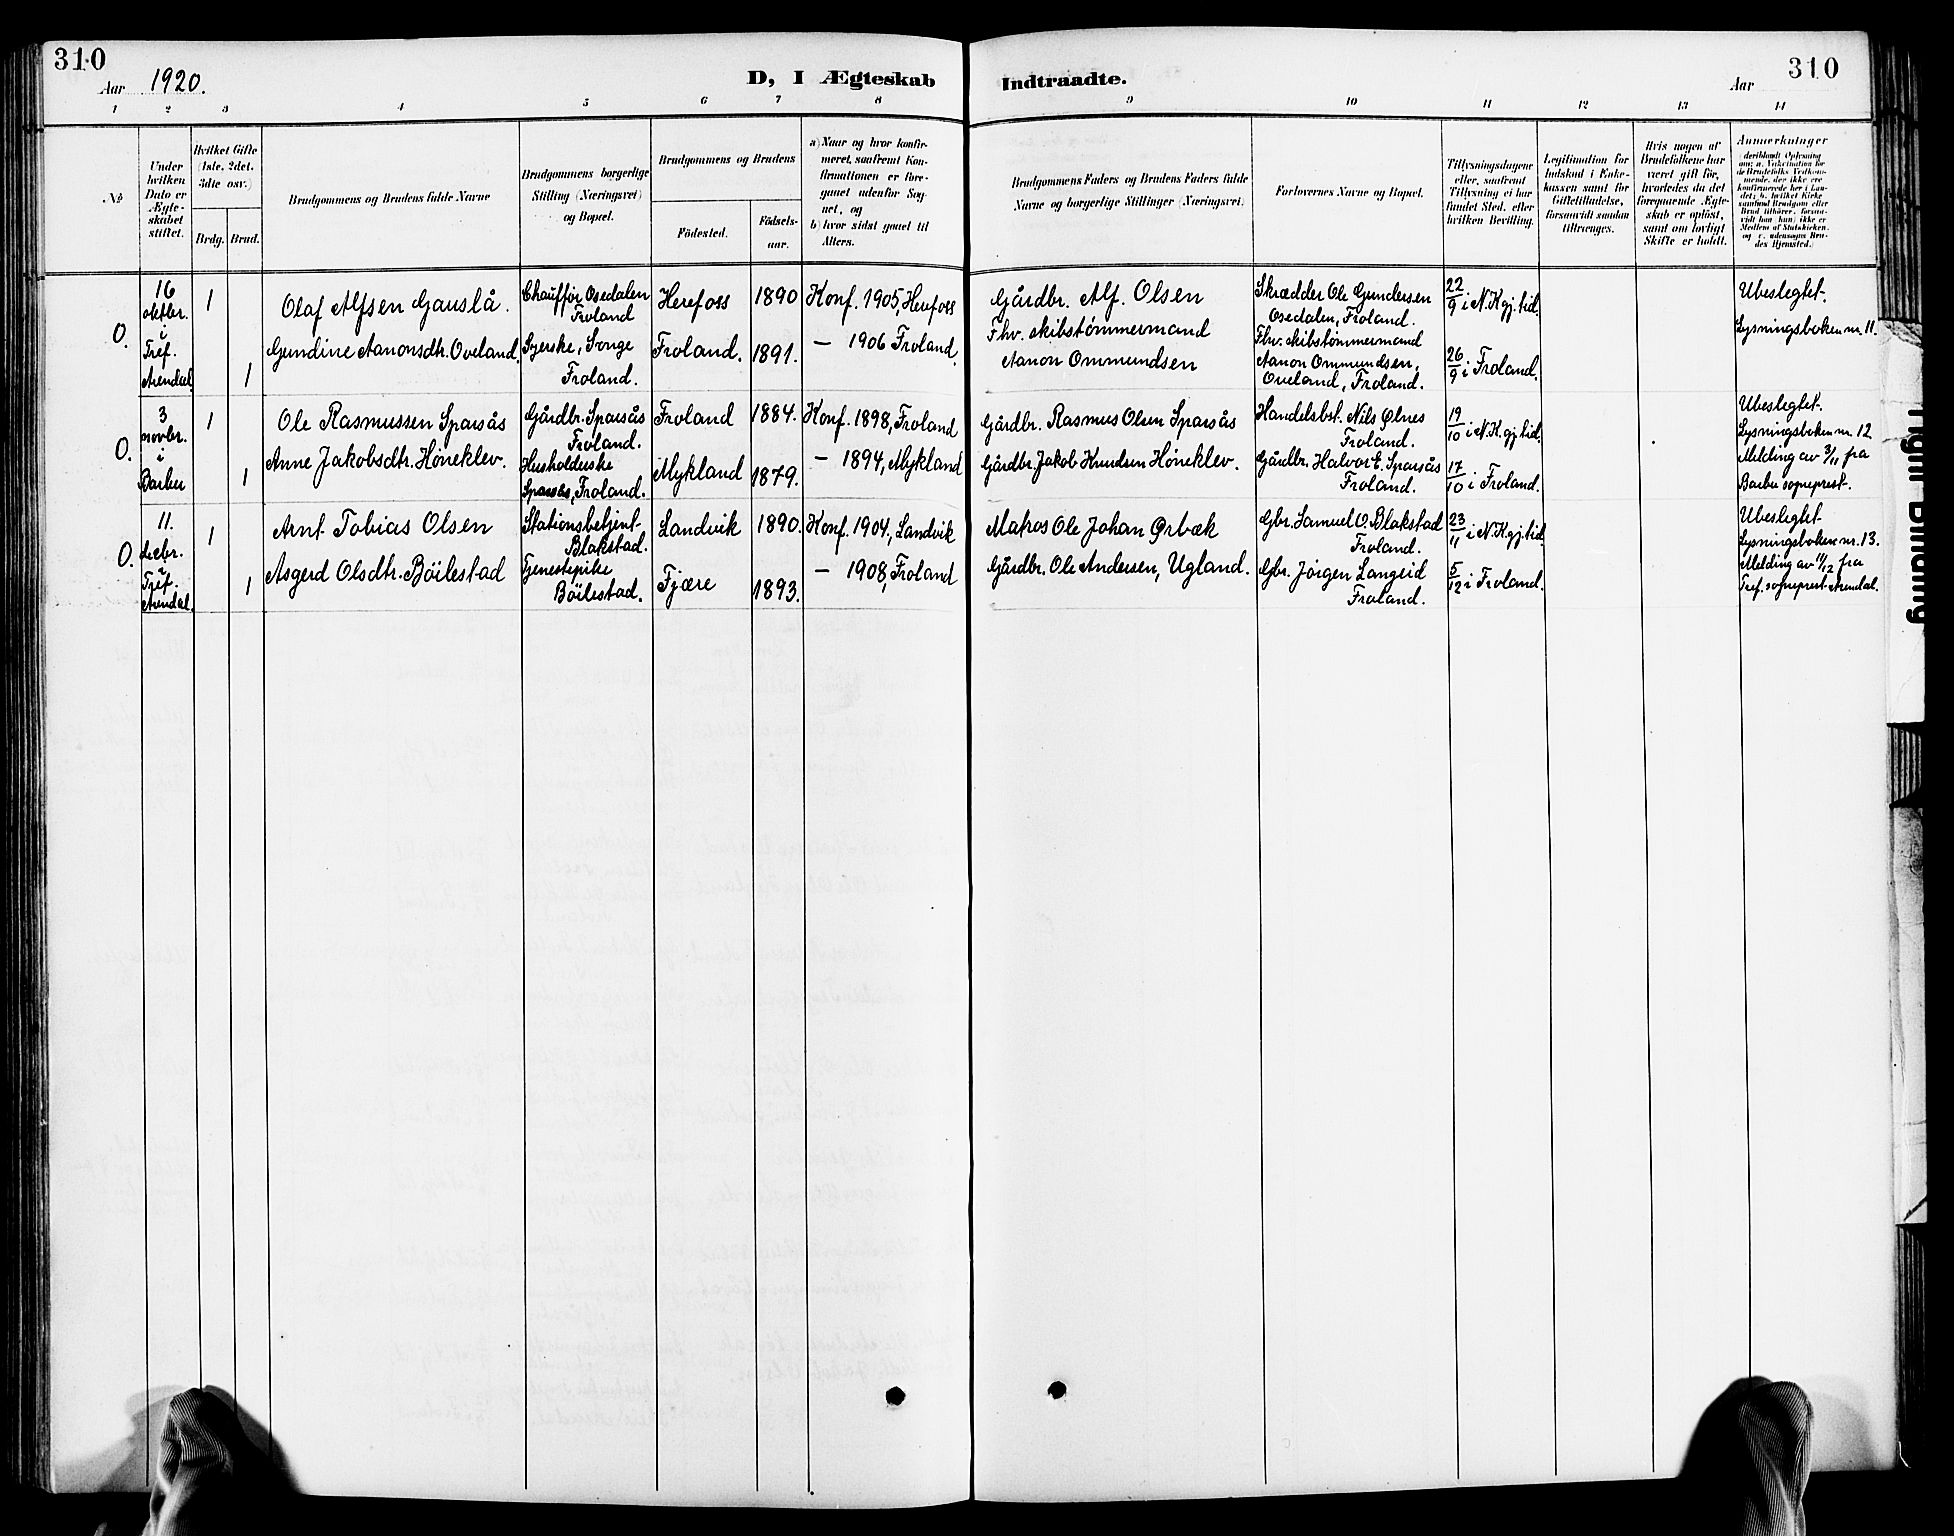 310
Aar 1920.
D, I Ægteskab
Indtraadte.
Aar
310
1 2 3 4 5 6 7 8
9 10 11 12 13 14
No
Under hvilken Dato er Ægteskabet stiftet.
Hvilket Gifte (1ste. 2det. 3die osv.)
Brdg. Brud.
Brudgommens og Brudens fulde Navne
Brudgommens borgerlige Stilling (Næringsvei) og Bopæl.
Brudgommens og Brudens
Födested.
Födselsaar.
a) Naar og hvor konfirmeret, saafremt Konfirmationen er foregaaet udenfor Sognet, og
b) hvor sidst gaaet til Alters.
Brudgommens Faders og Brudens Faders fulde Navne og borgerlige Stillinger (Næringsvei).
Forlovernes Navne og Bopæl.
Tillysningsdagene eller, saafremt Tillysning ei har fundet Sted, efter hvilken Bevilling.
Legitimation for Indskud i Enkekassen samt for Giftetilladelse, forsaavidt saadan tiltrænges.
Hvis nogen af Brudefolkene har været gift för, hvorledes da det foregaaende Ægteskab er oplöst, samt om lovligt Skifte er holdt.
Anmerkninger
0.
16 oktbr. i Tref. Arendal.
1
Olaf Alfsen Gauslå.
Chauffør, Osedalen Froland
Herefoss
1890
Konf. 1905, Herefoss
Gårdbr. Alf. Olsen
Skrædder Ole Gundersen Osedalen, Froland.
22/9 i N. Kgj. tid.
Ubeslegtet.
Lysningsboken nr. 11.
1
Gundine Aanonsdtr. Oveland.
Syerske, Songe Froland.
Froland.
1891.
— 1906 Froland.
Fhv. skibstømmermand Aanon Ommundsen
Fhv. skibstømmermand Aanon Ommundsen, Oveland, Froland.
26/9 i Froland.
0.
3 novbr. i Barbu
1
Ole Rasmussen Sparsås
Gårdbr. Sparsås Froland.
Froland
1884.
Konf. 1898, Froland
Gårdbr. Rasmus Olsen Sparsås
Handelsbst. Nils Ølnes Froland.
19/10 i N. K. gj. tid.
Ubeslegtet.
Lysningsboken nr. 12
Melding av 3/11 fra
Barbu sogneprest.
1
Anne Jakobsdtr. Høneklev.
Husholderske Sparsås, Froland.
Mykland
1879.
— 1894, Mykland
Gårdbr. Jakob Knudsen Høneklev.
Gårdbr. Halvor E. Sparsås Froland.
17/10 i Froland.
0.
11. decbr. i Tref. Arendal.
1
Arnt Tobias Olsen
Stationsbetjent Blakstad.
Landvik
1890.
Konf. 1904, Landvik
Matros Ole Johan Ørbæk
Gbr. Samuel O. Blakstad Froland.
23/11 i N. K. gj. tid.
Ubeslegtet
Lysningsboken nr. 13.
Melding av 11/12 fra
Tref. sogneprest Arendal.
1
Asgerd Olsdtr. Böilestad
Tjenestepike Böilestad.
Fjære
1893.
— 1908, Froland
Gårdbr. Ole Andersen, Ugland.
Gbr. Jörgen Langeid Froland.
5/12 i Froland.